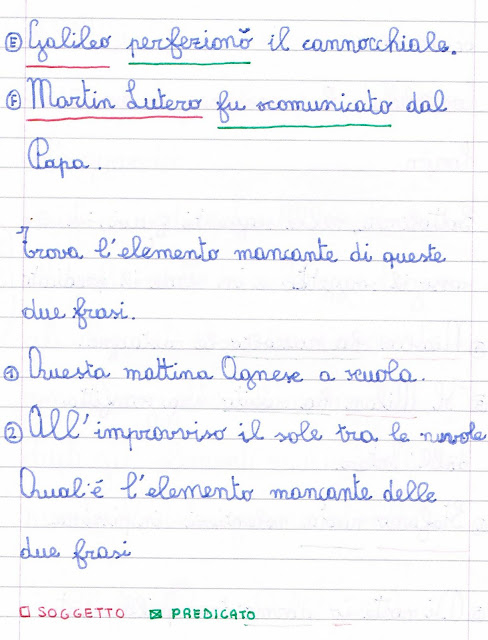 E Galileo perfezionò il cannocchiale.
F Martin Lutero fu scomunicato dal
Papa.
Trova l'elemento mancante di queste
due frasi.
1 Questa mattina Agnese a scuola.
2 All'improvviso il sole tra le nuvole
Qual'é l'elemento mancante delle
due frasi
SOGGETTO PREDICATO